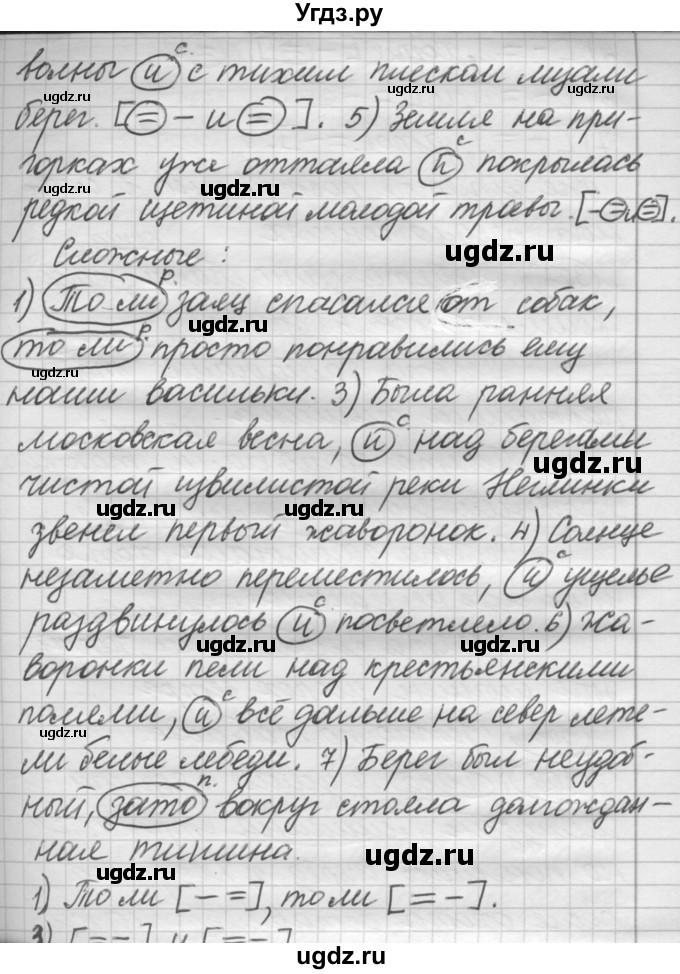 Угдз.ру
волны и с тихим плеском лизали
берег. [= – и =]. 5) Земля на при-
горках уже оттаяла и покрылась
редкой щетиной молодой травы. [– = и =].
Сложные:
1) То ли заяц спасался от собак,
то ли просто понравились ему
наши васильки. 3) Была ранняя
московская весна, и над берегами
чистой извилистой реки Неглинки
звенел первый жаворонок. 4) Солнце
незаметно переместилось, и ущелье
раздвинулось и посветлело. 6) Жа-
воронки пели над крестьянскими
полями, и всё дальше на север лете-
ли белые лебеди. 7) Берег был неудоб-
ный, зато вокруг стояла долгождан-
ная тишина.
1) То ли [– =], то ли [= –].
3) [= –], и [= –]
ugdz.ru